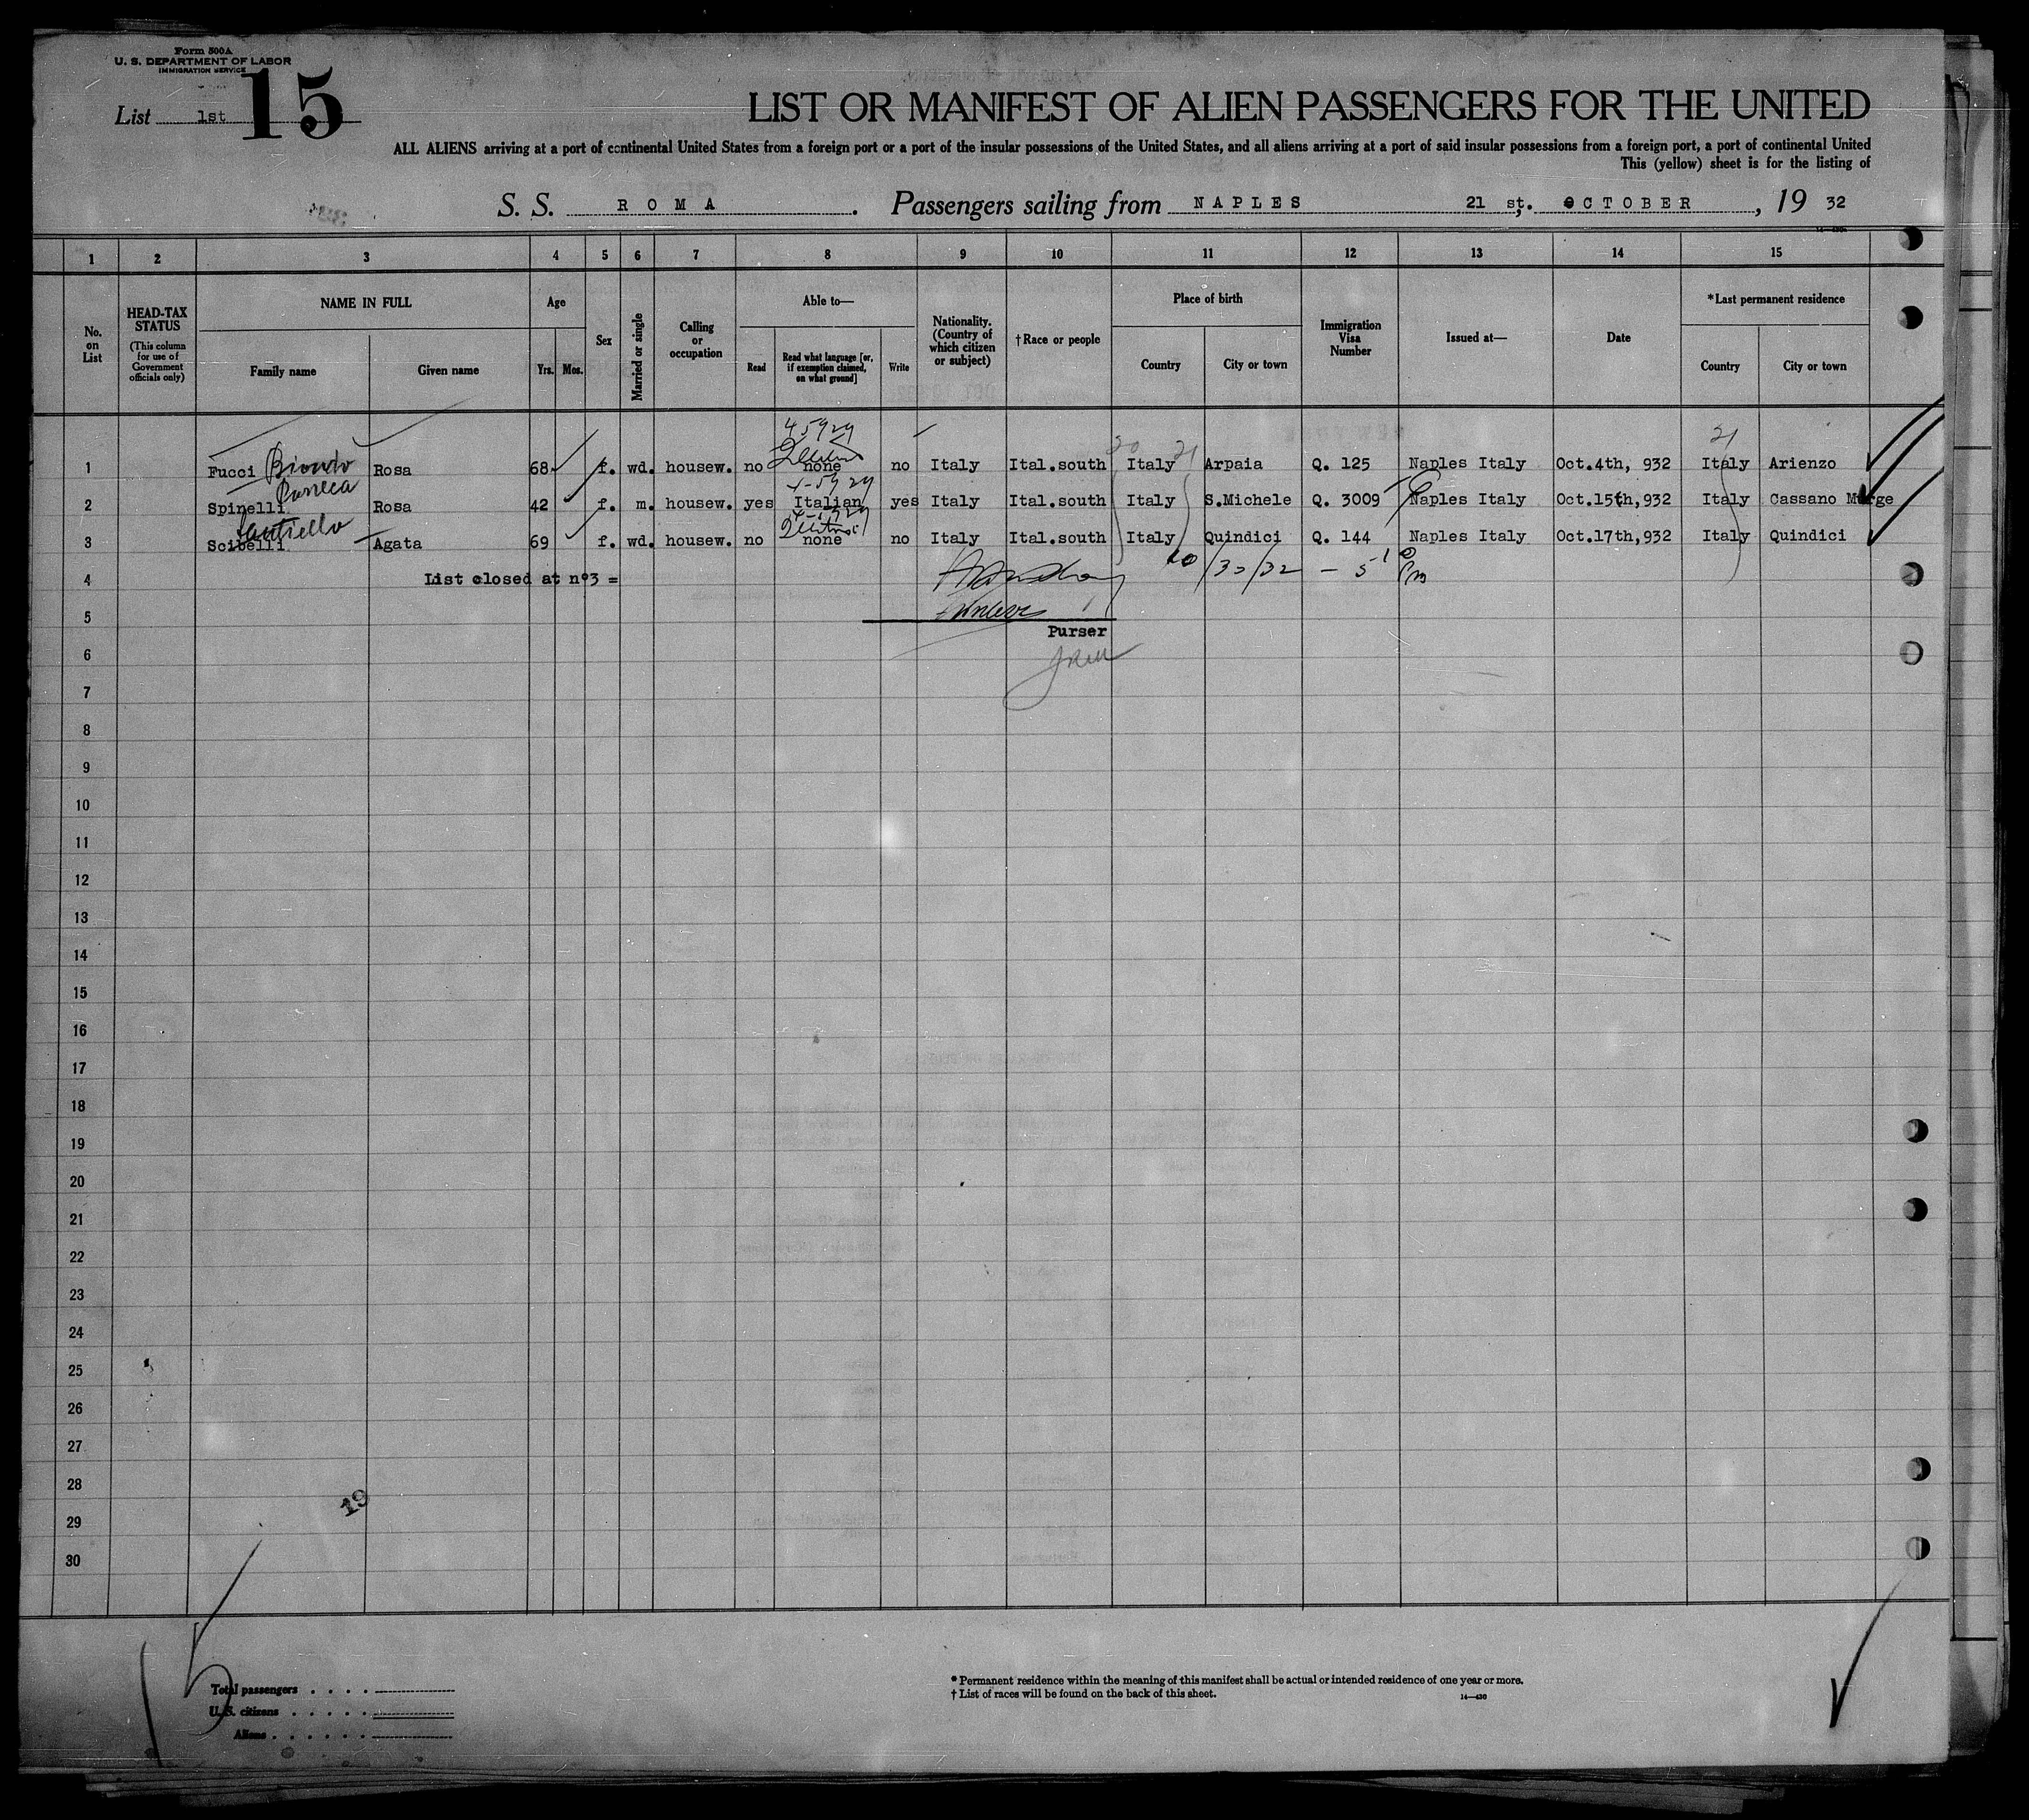 Form 500A
U. S. DEPARTMENT OF LABOR
IMMIGRATION SERVICE
List 1st 15
LIST OR MANIFEST OF ALIEN PASSENGERS FOR THE UNITED
ALL ALIENS arriving at a port of continental United States from a foreign port or a port of the insular possessions of the United States, and all aliens arriving at a port of said insular possessions from a foreign port, a port of continental United
This (yellow) sheet is for the listing of
S. S. ROMA. Passengers sailing from NAPLES 21 st. OCTOBER, 19 32
1 2 3 4 5 6 7 8 9 10 11 12 13 14 15
No. on List
HEAD-TAX STATUS
(This column for use of Government officials only)
NAME IN FULL
Family name Given name
Age
Yrs. Mos.
Sex
Married or single
Calling or occupation
Able to—
Read
Read what language [or, if exemption claimed, on what ground]
Write
Nationality. (Country of which citizen or subject)
†Race or people
Place of birth
Country City or town
Immigration Visa Number
Issued at—
Date
*Last permanent residence
Country City or town
45929 21
20 21
1 Fucci Biondo Rosa 68 f. wd. housew. no none no Italy Ital.south Italy Arpaia Q. 125 Naples Italy Oct.4th, 932 Italy Arienzo
2 Spinelli Rosa 42 f. m. housew. yes Italian yes Italy Ital.south Italy S.Michele Q. 3009 Naples Italy Oct.15th,932 Italy Cassano Murge
3 Scibelli Santiello Agata 69 f. wd. housew. no none no Italy Ital.south Italy Quindici Q. 144 Naples Italy Oct.17th,932 Italy Quindici
4 List closed at n°3 =
5
Purser
6
7
8
9
10
11
12
13
14
15
16
17
18
19
20
21
22
23
24
25
26
27
28
19
29
30
Total passengers . . . .
U. S. citizens . . . . .
Aliens . . . . . .
* Permanent residence within the meaning of this manifest shall be actual or intended residence of one year or more.
† List of races will be found on the back of this sheet.
14—430